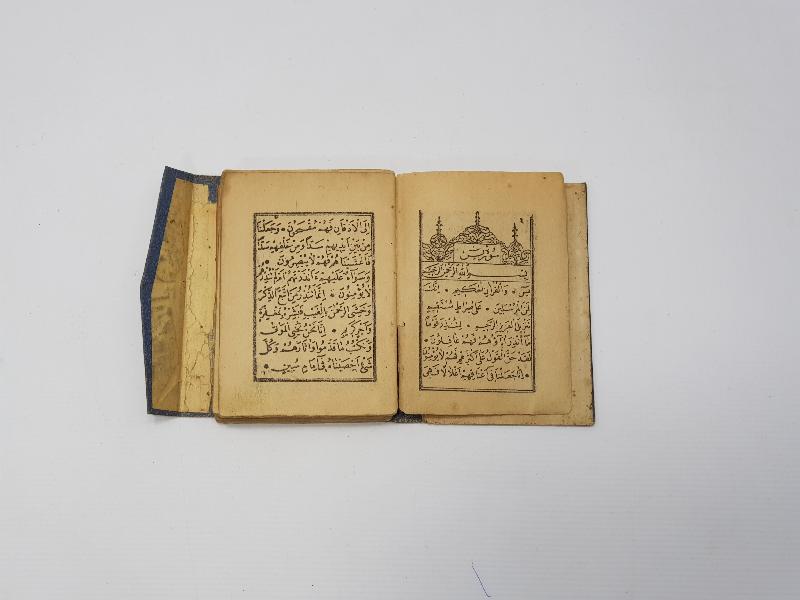 ٢
سورة يس
بسم الله الرحمن الرحيم
يس • والقرآن الحكيم • إنك
لمن المرسلين • على صراط مستقيم
تنزيل العزيز الرحيم • لتنذر قوما
ما أنذر آباؤهم فهم غافلون •
لقد حق القول على أكثرهم فهم لا يؤمنون
• إنا جعلنا في أعناقهم أغلالا فهي
إلى الأذقان فهم مقمحون • وجعلنا
من بين أيديهم سدا ومن خلفهم سدا
فأغشيناهم فهم لا يبصرون •
وسواء عليهم ءأنذرتهم أم لم تنذرهم
لا يؤمنون • إنما تنذر من اتبع الذكر
وخشي الرحمن بالغيب فبشره بمغفرة
وأجر كريم • إنا نحن نحيي الموتى
ونكتب ما قدموا وآثارهم وكل
شيء أحصيناه في إمام مبين •